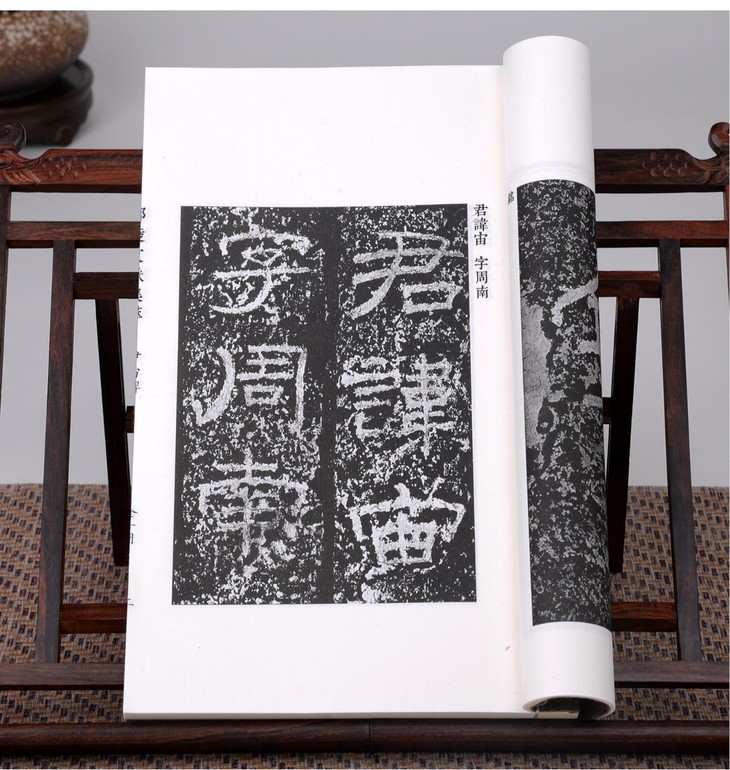 君諱宙
字周南
君諱宙　字周南
銘